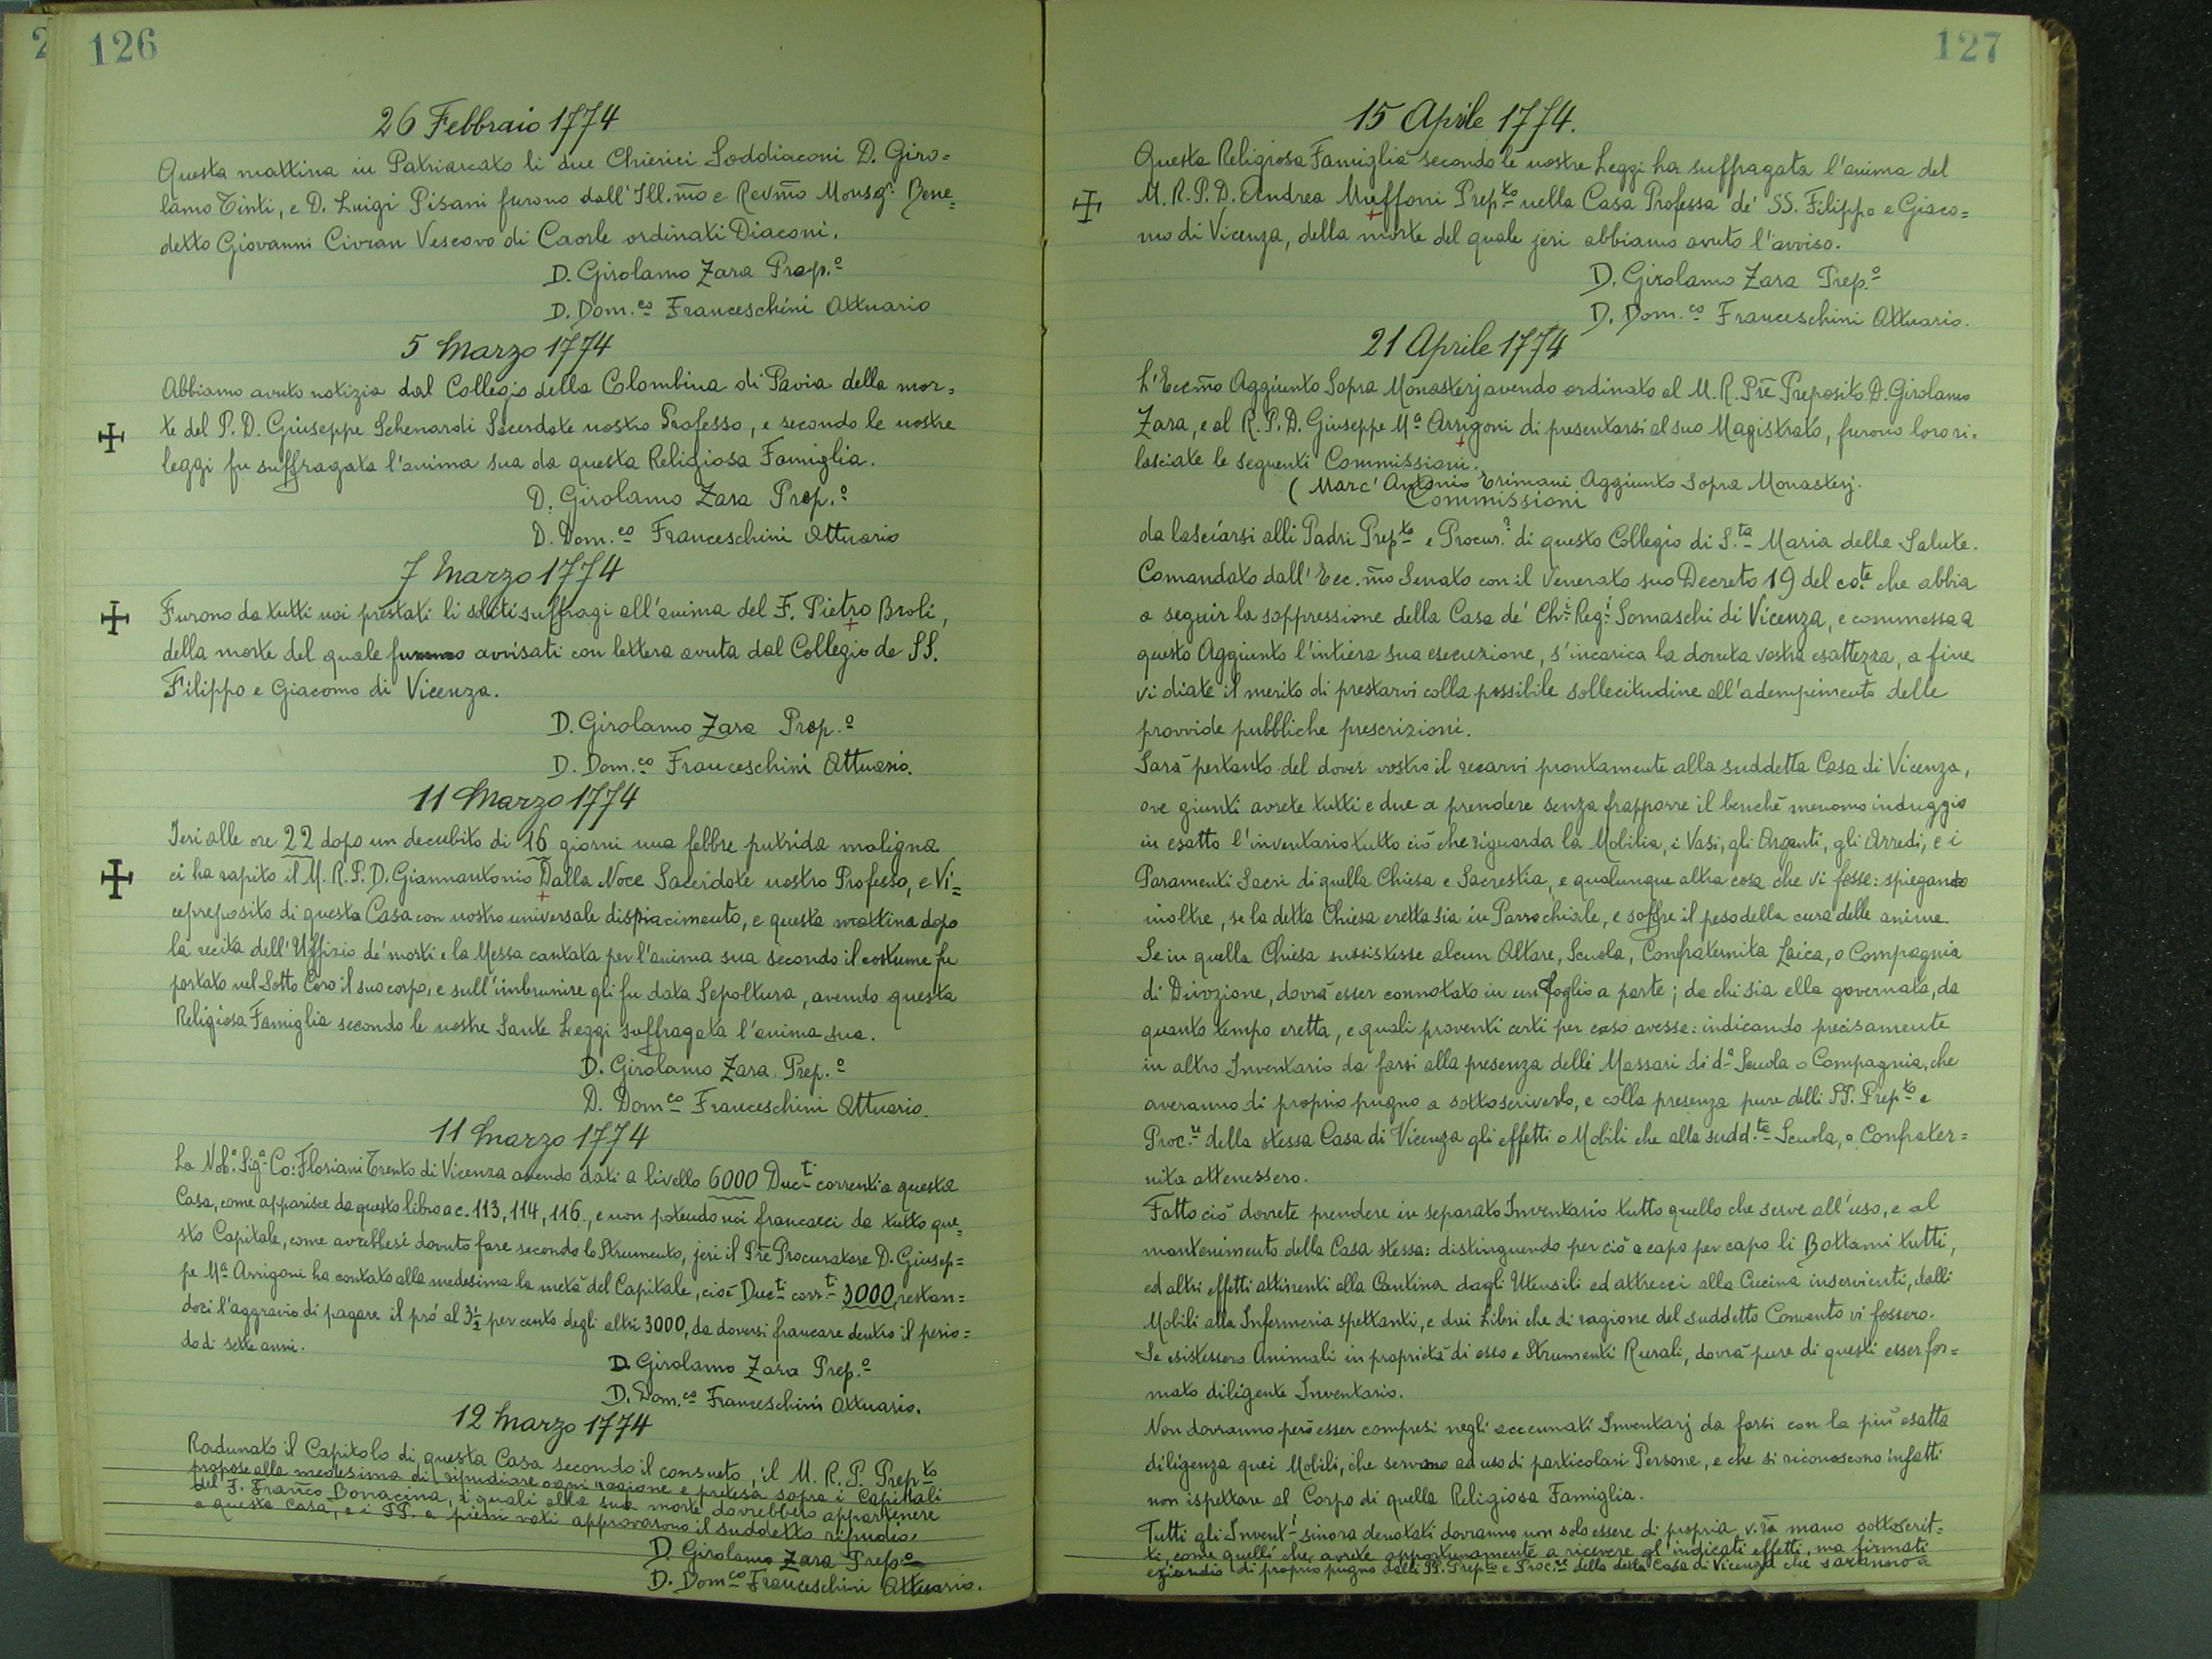 126
26 Febbraio 1774
Questa mattina in Patriarcato li due Chierici Soddiaconi D. Giro=
lamo Tinti, e D. Luigi Pisani furono dall' Ill.mo e Revmo Monsg.r Bene=
detto Giovanni Civran Vescovo di Caorle ordinati Diaconi.
D. Girolamo Zara Prep.o
D. Dom.co Franceschini Attuario
5 Marzo 1774
Abbiamo avuto notizia dal Collegio della Colombina di Pavia della mor=
te del P. D. Giuseppe Schenardi Sacerdote nostro Professo, e secondo le nostre
leggi fu suffragata l'anima sua da questa Religiosa Famiglia.
D. Girolamo Zara Prep.o
D. Dom.co Franceschini Attuario
7 Marzo 1774
Furono da tutti noi prestati li soliti suffragi all'anima del F. Pietro Broli,
della morte del quale fummo avvisati con lettera avuta dal Collegio de SS.
Filippo e Giacomo di Vicenza.
D. Girolamo Zara Prep.o
D. Dom.co Franceschini Attuario.
11 Marzo 1774
Ieri alle ore 22 dopo un decubito di 16 giorni una febbre putrida maligna
ci ha rapito il M. R. P. D. Giannantonio Dalla Noce Sacerdote nostro Professo, e Vi=
cepreposito di questa Casa con nostro universale dispiacimento, e questa mattina dopo
la recita dell'Uffizio de' morti e la Messa cantata per l'anima sua secondo il costume fu
portato nel Sotto Coro il suo corpo, e sull'imbrunire gli fu data Sepoltura, avendo questa
Religiosa Famiglia secondo le nostre Sante Leggi suffragata l'anima sua.
D. Girolamo Zara Prep.o
D. Dom.co Franceschini Attuario.
11 Marzo 1774
La Nob.a Sig.a Co: Floriani Trento di Vicenza avendo dati a livello 6000 Duc.ti correnti a questa
Casa, come apparisce da questo libro a c. 113, 114, 116., e non potendo noi francarci da tutto que=
sto Capitale, come avrebbesi dovuto fare secondo lo Strumento, jeri il Pre Procuratore D. Giusep=
pe M.a Arrigoni ha contato alla medesima la metà del Capitale, cioè Duc.ti corr.ti 3000, restan=
doci l'aggravio di pagare il prò al 3 1/2 per cento degli altri 3000, da doversi francare dentro il perio=
do di sette anni.
D. Girolamo Zara Prep.o
D. Dom.co Franceschini Attuario.
12 Marzo 1774
Radunato il Capitolo di questa Casa secondo il consueto, il M. R. P. Prep.to
propose alla medesima di ripudiare ogni ragione e pretesa sopra i Capitali
del F. Franco Bonacina, i quali alla sua morte dovrebbero appartenere
a questa Casa, e i PP. a pieni voti approvarono il suddetto ripudio.
D. Girolamo Zara Prep.o
D. Dom.co Franceschini Attuario.
127
15 Aprile 1774.
Questa Religiosa Famiglia secondo le nostre Leggi ha suffragata l'anima del
M. R. P. D. Andrea Muffoni Prep.to nella Casa Professa de' SS. Filippo e Giaco=
mo di Vicenza, della morte del quale jeri abbiamo avuto l'avviso.
D. Girolamo Zara Prep.o
D. Dom.co Franceschini Attuario.
21 Aprile 1774
L'Eccmo Aggiunto Sopra Monasterj avendo ordinato al M. R. Pre Preposito D. Girolamo
Zara, e al R. P. D. Giuseppe M.a Arrigoni di presentarsi al suo Magistrato, furono loro ri=
lasciate le seguenti Commissioni.
( Marc' Antonio Erimani Aggiunto Sopra Monasterj.
Commissioni
da lasciarsi alli Padri Prep.to e Procur.r di questo Collegio di S.ta Maria della Salute.
Comandato dall'Ecc.mo Senato con il Venerato suo Decreto 19 del co.te che abbia
a seguir la soppressione della Casa de' Ch.i Reg.i Somaschi di Vicenza, e commessa a
questo Aggiunto l'intiera sua esecuzione, s'incarica la dovuta vostra esattezza, a fine
vi diate il merito di prestarvi colla possibile sollecitudine all'adempimento delle
provvide pubbliche prescrizioni.
Sarà pertanto del dover vostro il recarvi prontamente alla suddetta Casa di Vicenza,
ove giunti avrete tutti e due a prendere senza frapporre il benchè menomo induggio
in esatto l'inventario tutto ciò che riguarda la Mobilia, i Vasi, gli Argenti, gli Arredi, e i
Paramenti Sacri di quella Chiesa e Sacrestia, e qualunque altra cosa che vi fosse: spiegando
inoltre, se la detta Chiesa eretta sia in Parrochiale, e soffre il peso della cura delle anime
Se in quella Chiesa sussistesse alcun Altare, Scuola, Confraternita Laica, o Compagnia
di Divozione, dovrà esser connotato in un foglio a parte; da chi sia ella governata, da
quanto tempo eretta, e quali proventi certi per caso avesse: indicando precisamente
in altro Inventario da farsi alla presenza delli Massari di d.a Scuola o Compagnia, che
averanno di proprio pugno a sottoscriverlo, e colla presenza pure delli PP. Prep.to e
Proc.re della stessa Casa di Vicenza gli effetti o Mobili che alla sudd.ta Scuola, o Confrater=
nita attenessero.
Fatto ciò dovrete prendere in separato Inventario tutto quello che serve all'uso, e al
mantenimento della Casa stessa: distinguendo per ciò a capo per capo li Bottami tutti,
ed altri effetti attinenti alla Cantina dagli Utensili ed attrecci alla Cucina inservienti, dalli
Mobili alla Infermeria spettanti, e dai Libri che di ragione del suddetto Convento vi fossero.
Se esistessero Animali in proprietà di esso e Strumenti Rurali, dovrà pure di questi esser for=
mato diligente Inventario.
Non dovranno però esser compresi negli accennati Inventarj da farsi con la più esatta
diligenza quei Mobili, che servono ad uso di particolari Persone, e che si riconoscono infatti
non ispettare al Corpo di quella Religiosa Famiglia.
Tutti gli Invent.i sinora denotati dovranno non solo essere di propria v.ra mano sottoscrit=
ti, come quelli che avrete opportunamente a ricevere gl'indicati effetti, ma firmati
eziandio di proprio pugno dalli PP. Prep.to e Proc.re della detta Casa di Vicenza che saranno a